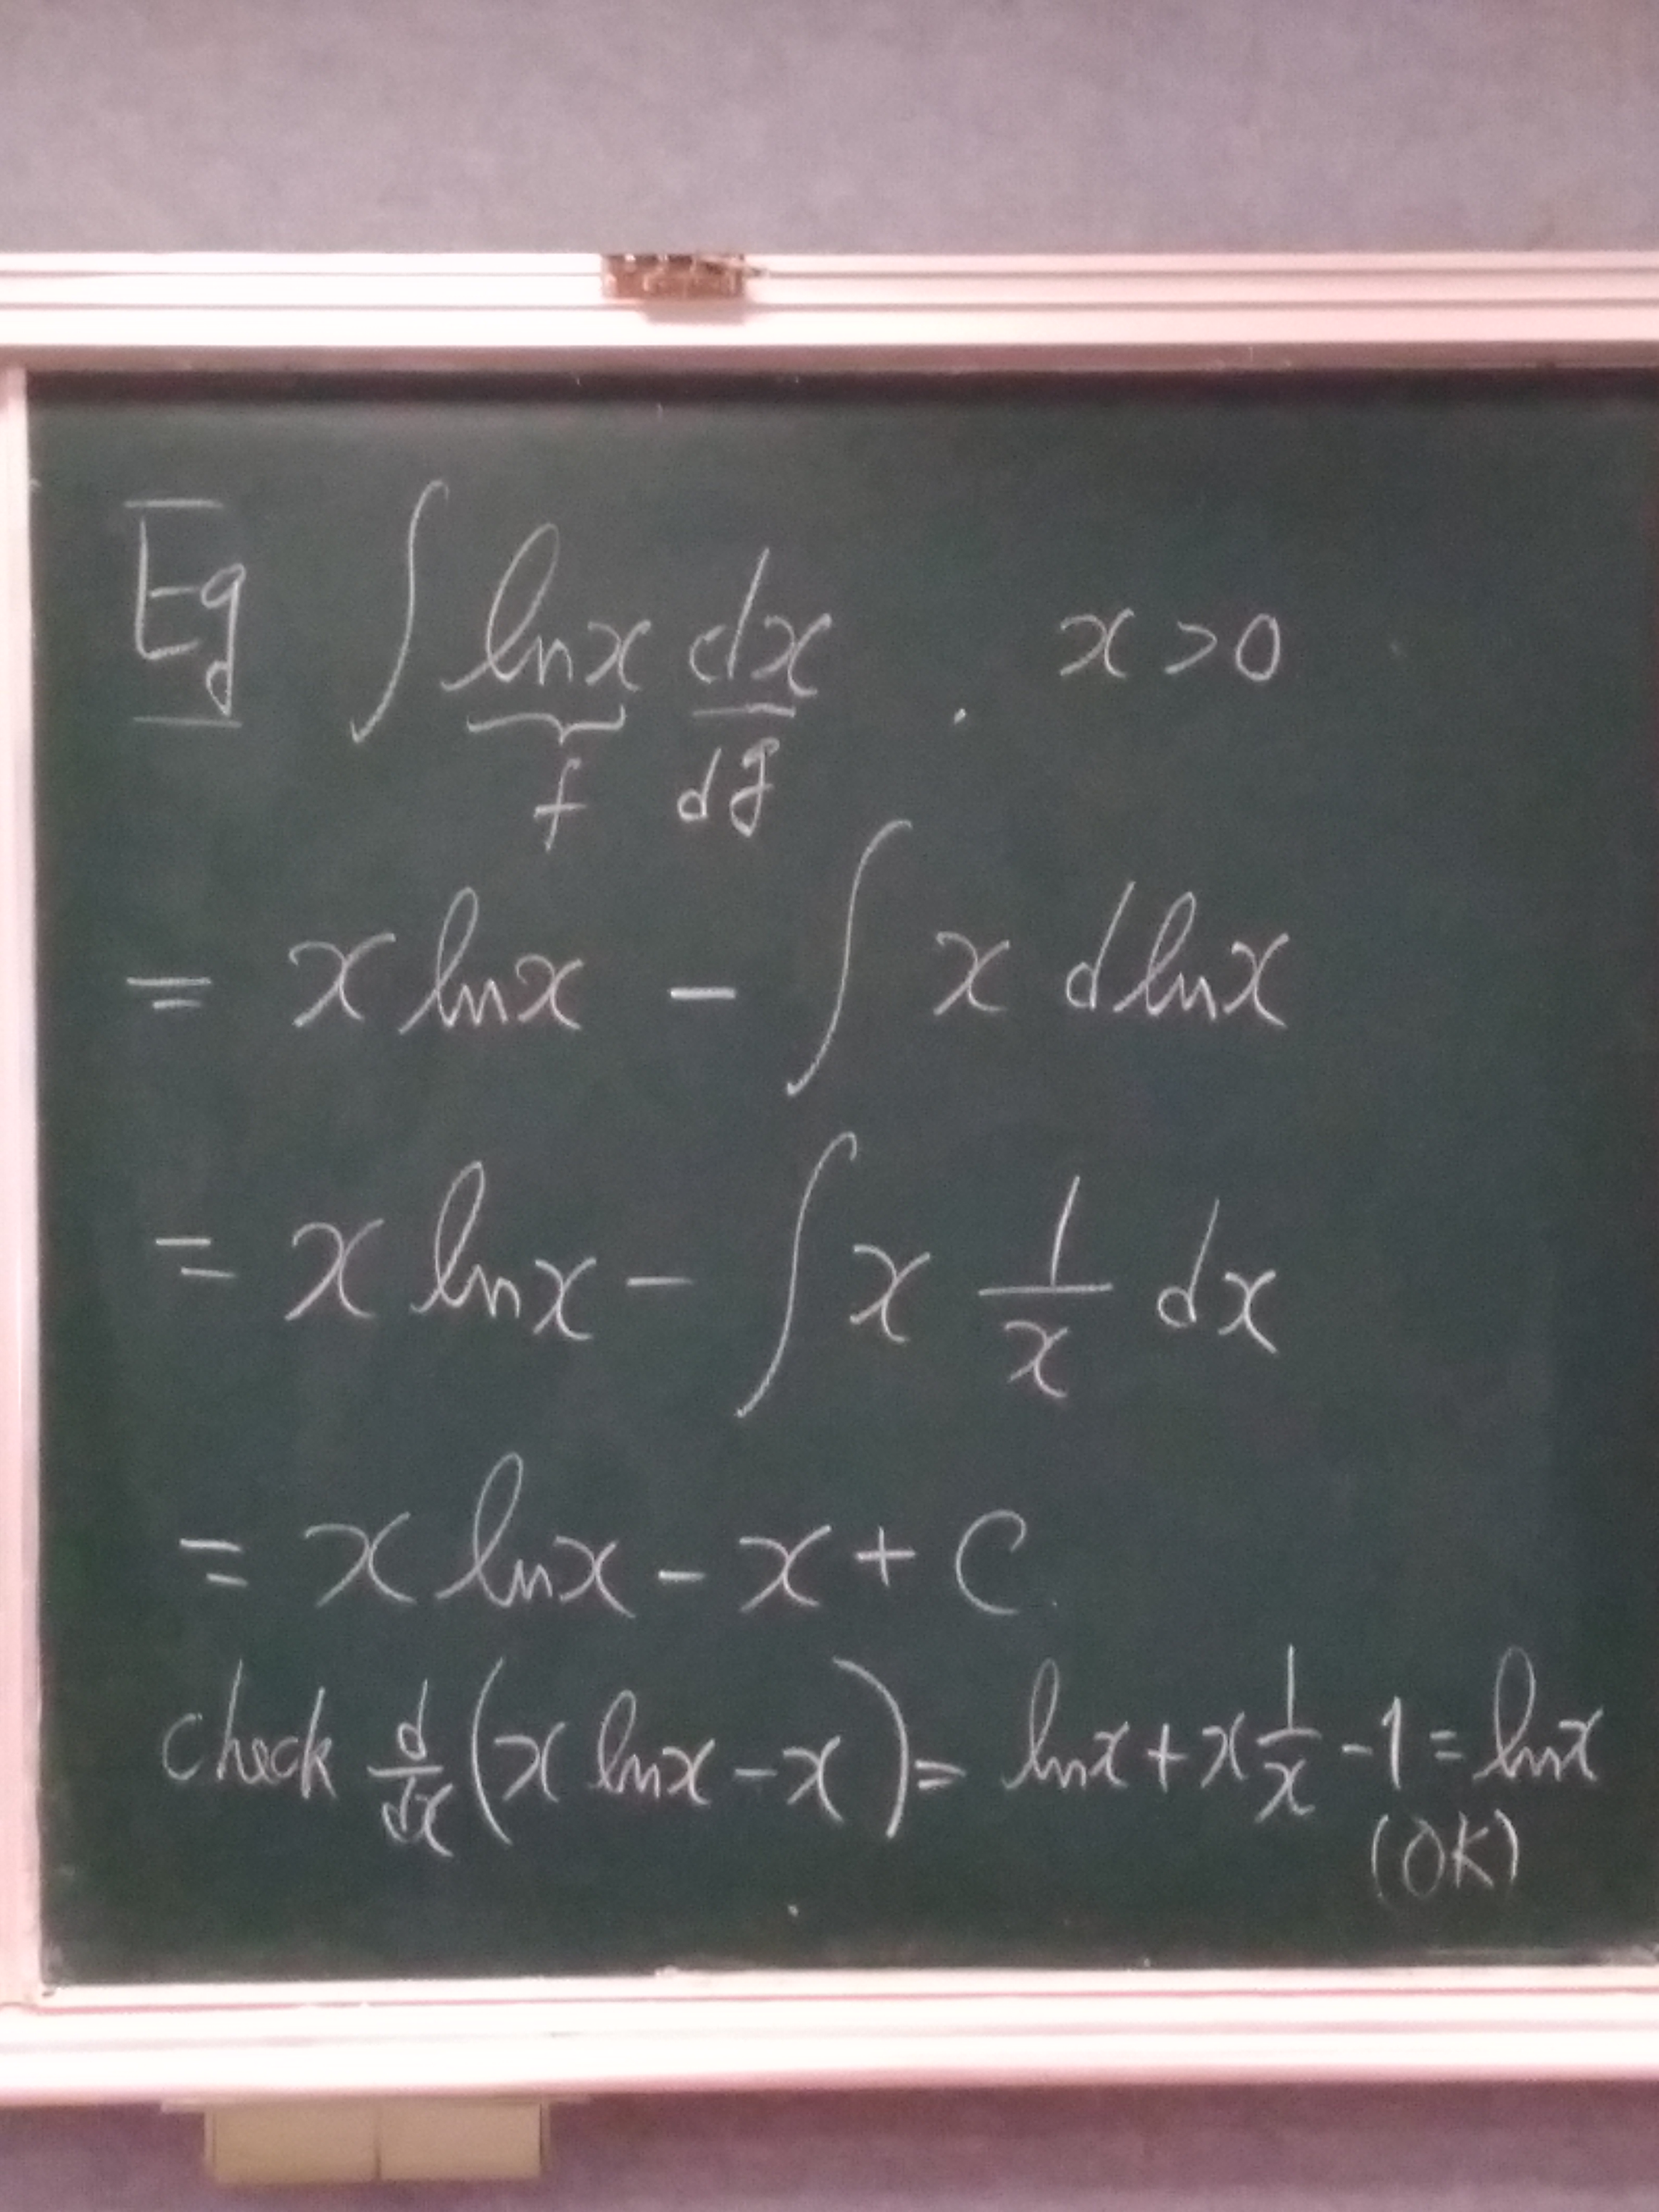 Eg ∫ ln x dx . x > 0
f dg
= x ln x - ∫ x d ln x
= x ln x - ∫ x 1/x dx
= x ln x - x + C
check d/dx (x ln x - x) = ln x + x 1/x - 1 = ln x
(OK)